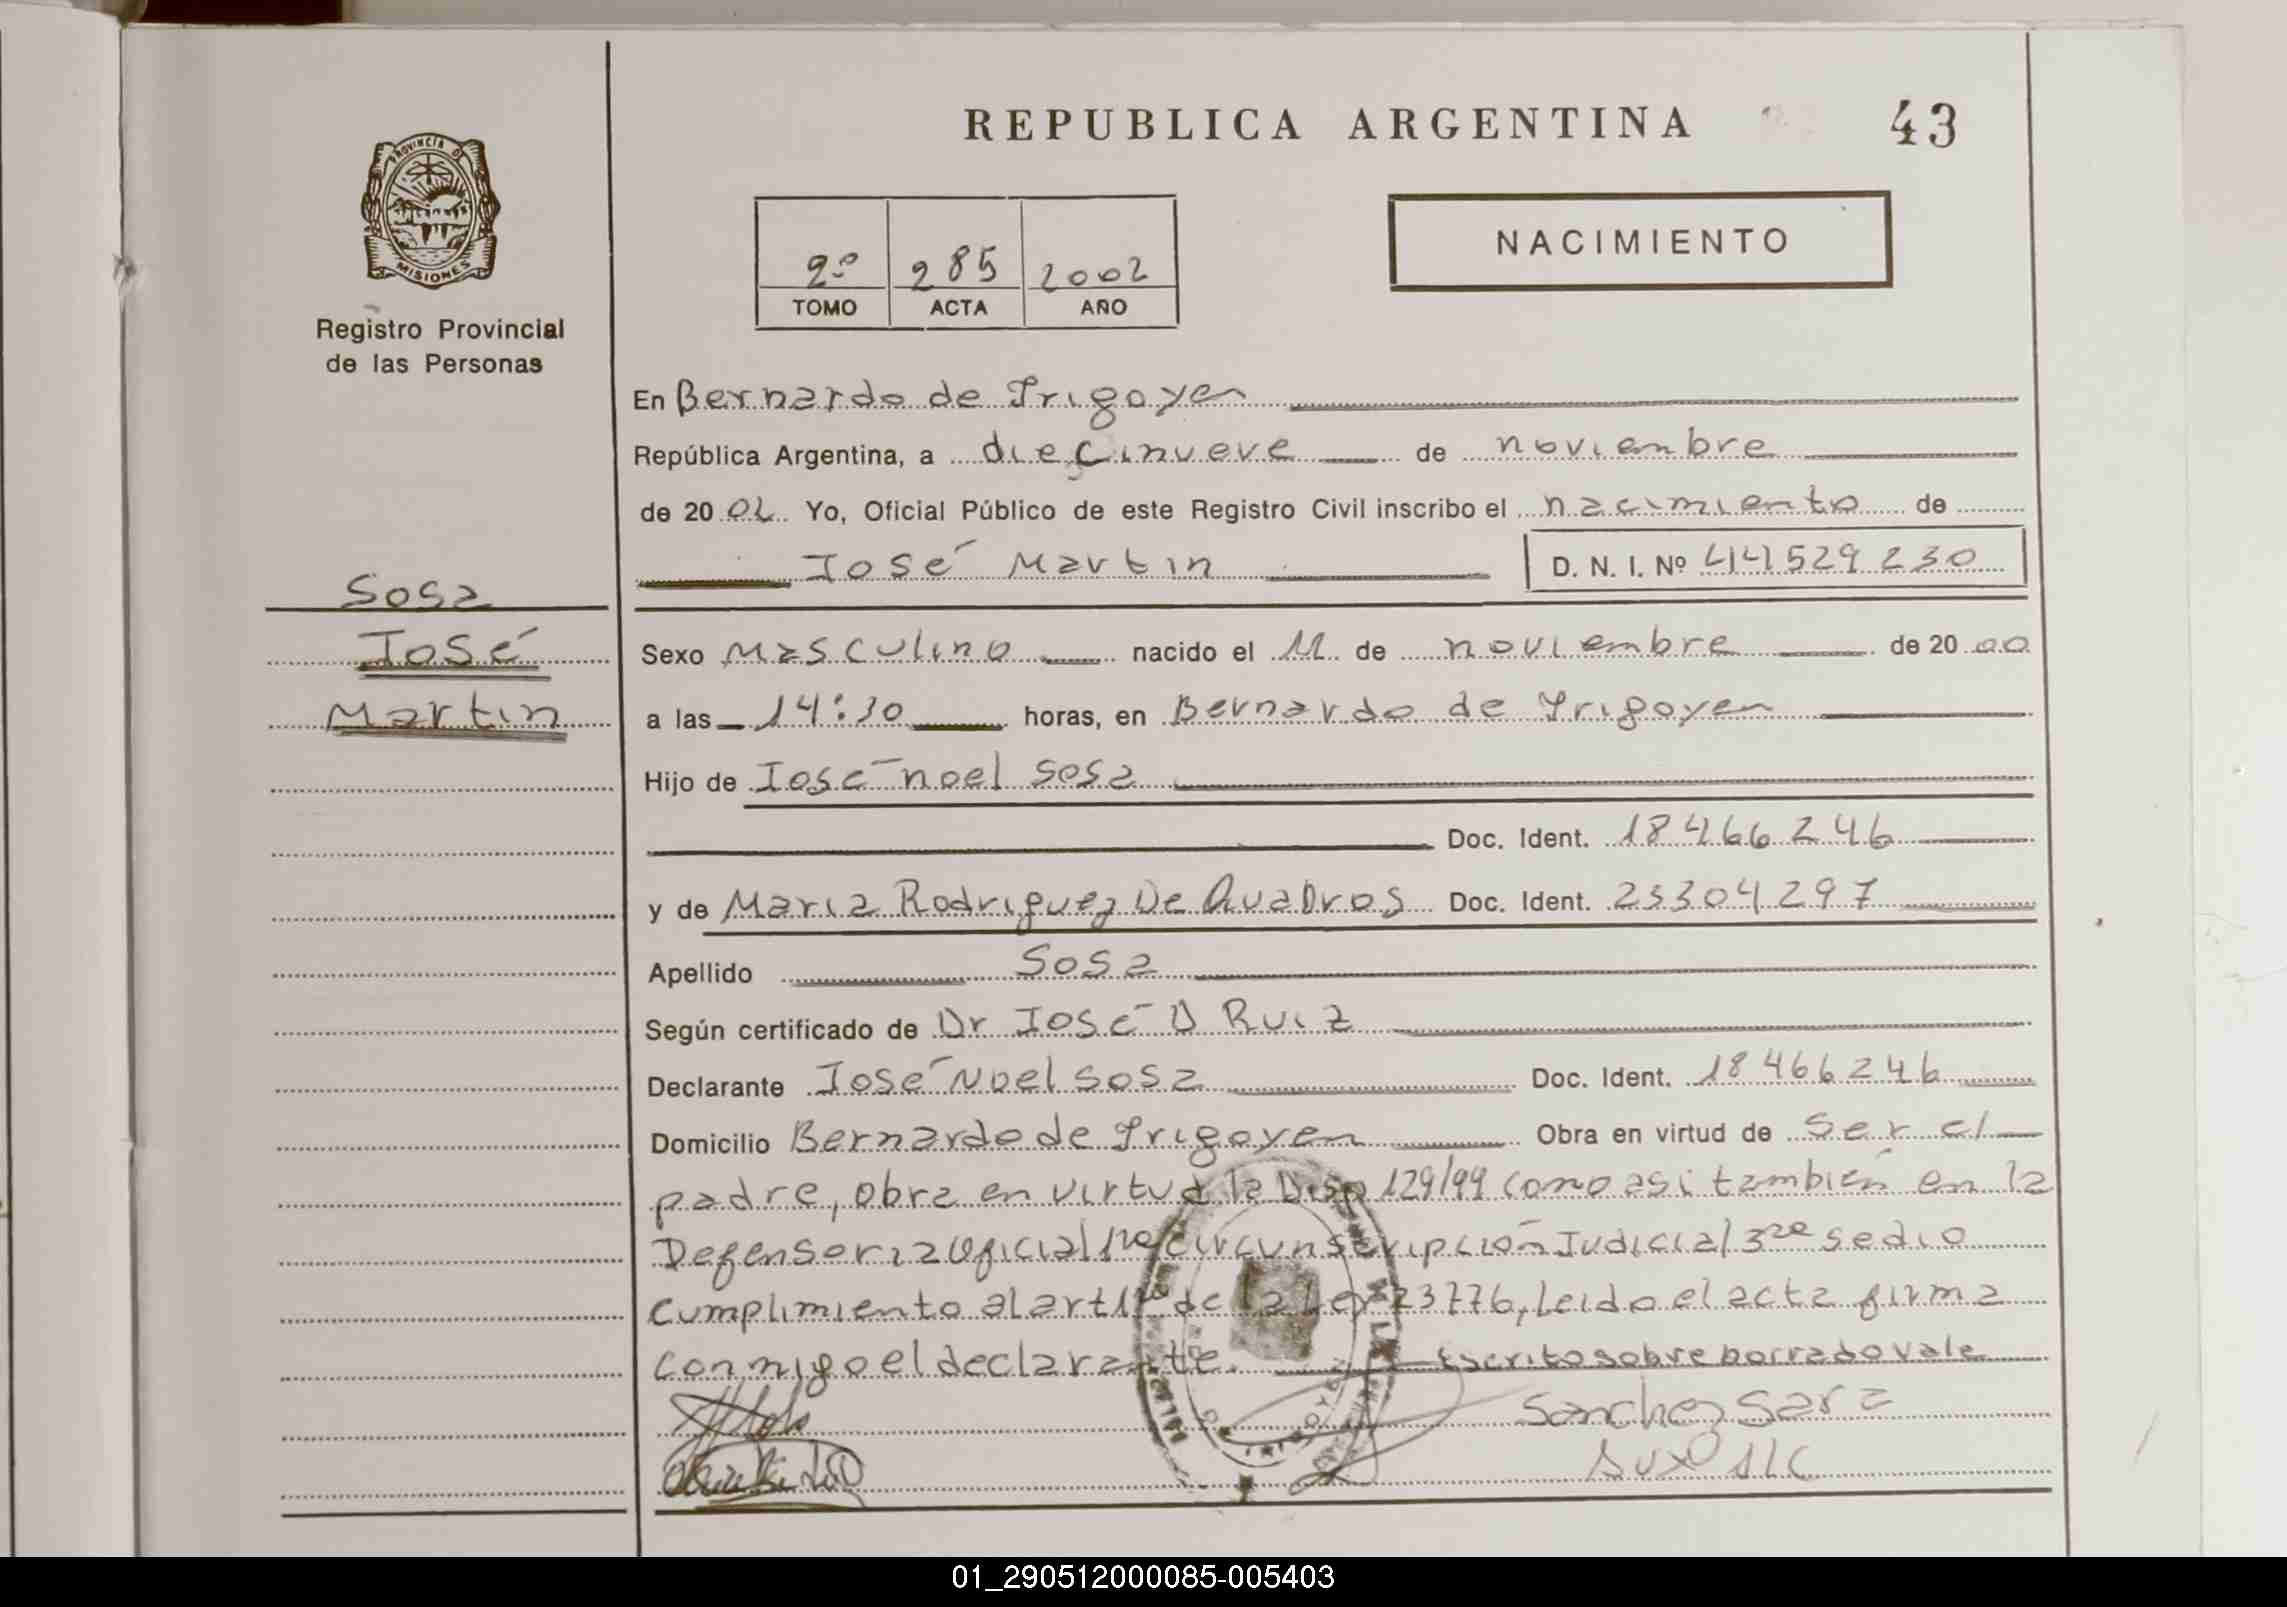 REPUBLICA ARGENTINA 43
PROVINCIA DE
MISIONES
Registro Provincial
de las Personas
2º 285 2002
TOMO ACTA AÑO
NACIMIENTO
En Bernardo de Irigoyen
República Argentina, a diecinueve de noviembre
de 2002 Yo, Oficial Público de este Registro Civil inscribo el nacimiento de
José Martin D. N. I. Nº 44529230
Sosa
José
Martin
Sexo Masculino nacido el 11 de noviembre de 2000
a las 14:30 horas, en Bernardo de Irigoyen
Hijo de José noel Sosa
Doc. Ident. 18466246
y de Maria Rodriguez De Quadros Doc. Ident. 23304297
Apellido Sosa
Según certificado de Dr José D Ruiz
Declarante José Noel Sosa Doc. Ident. 18466246
Domicilio Bernardo de Irigoyen Obra en virtud de ser el
padre, obra en virtud la Disp 129/99 como asi también en la
Defensoria Oficial 1ra circunscripción Judicial 3ra se dio
cumplimiento al art 1º de la Ley 23776, leido el acta firma
conmigo el declarante. Escrito sobre borrado vale
Sanchez Sara
Aux º A/C
01_290512000085-005403